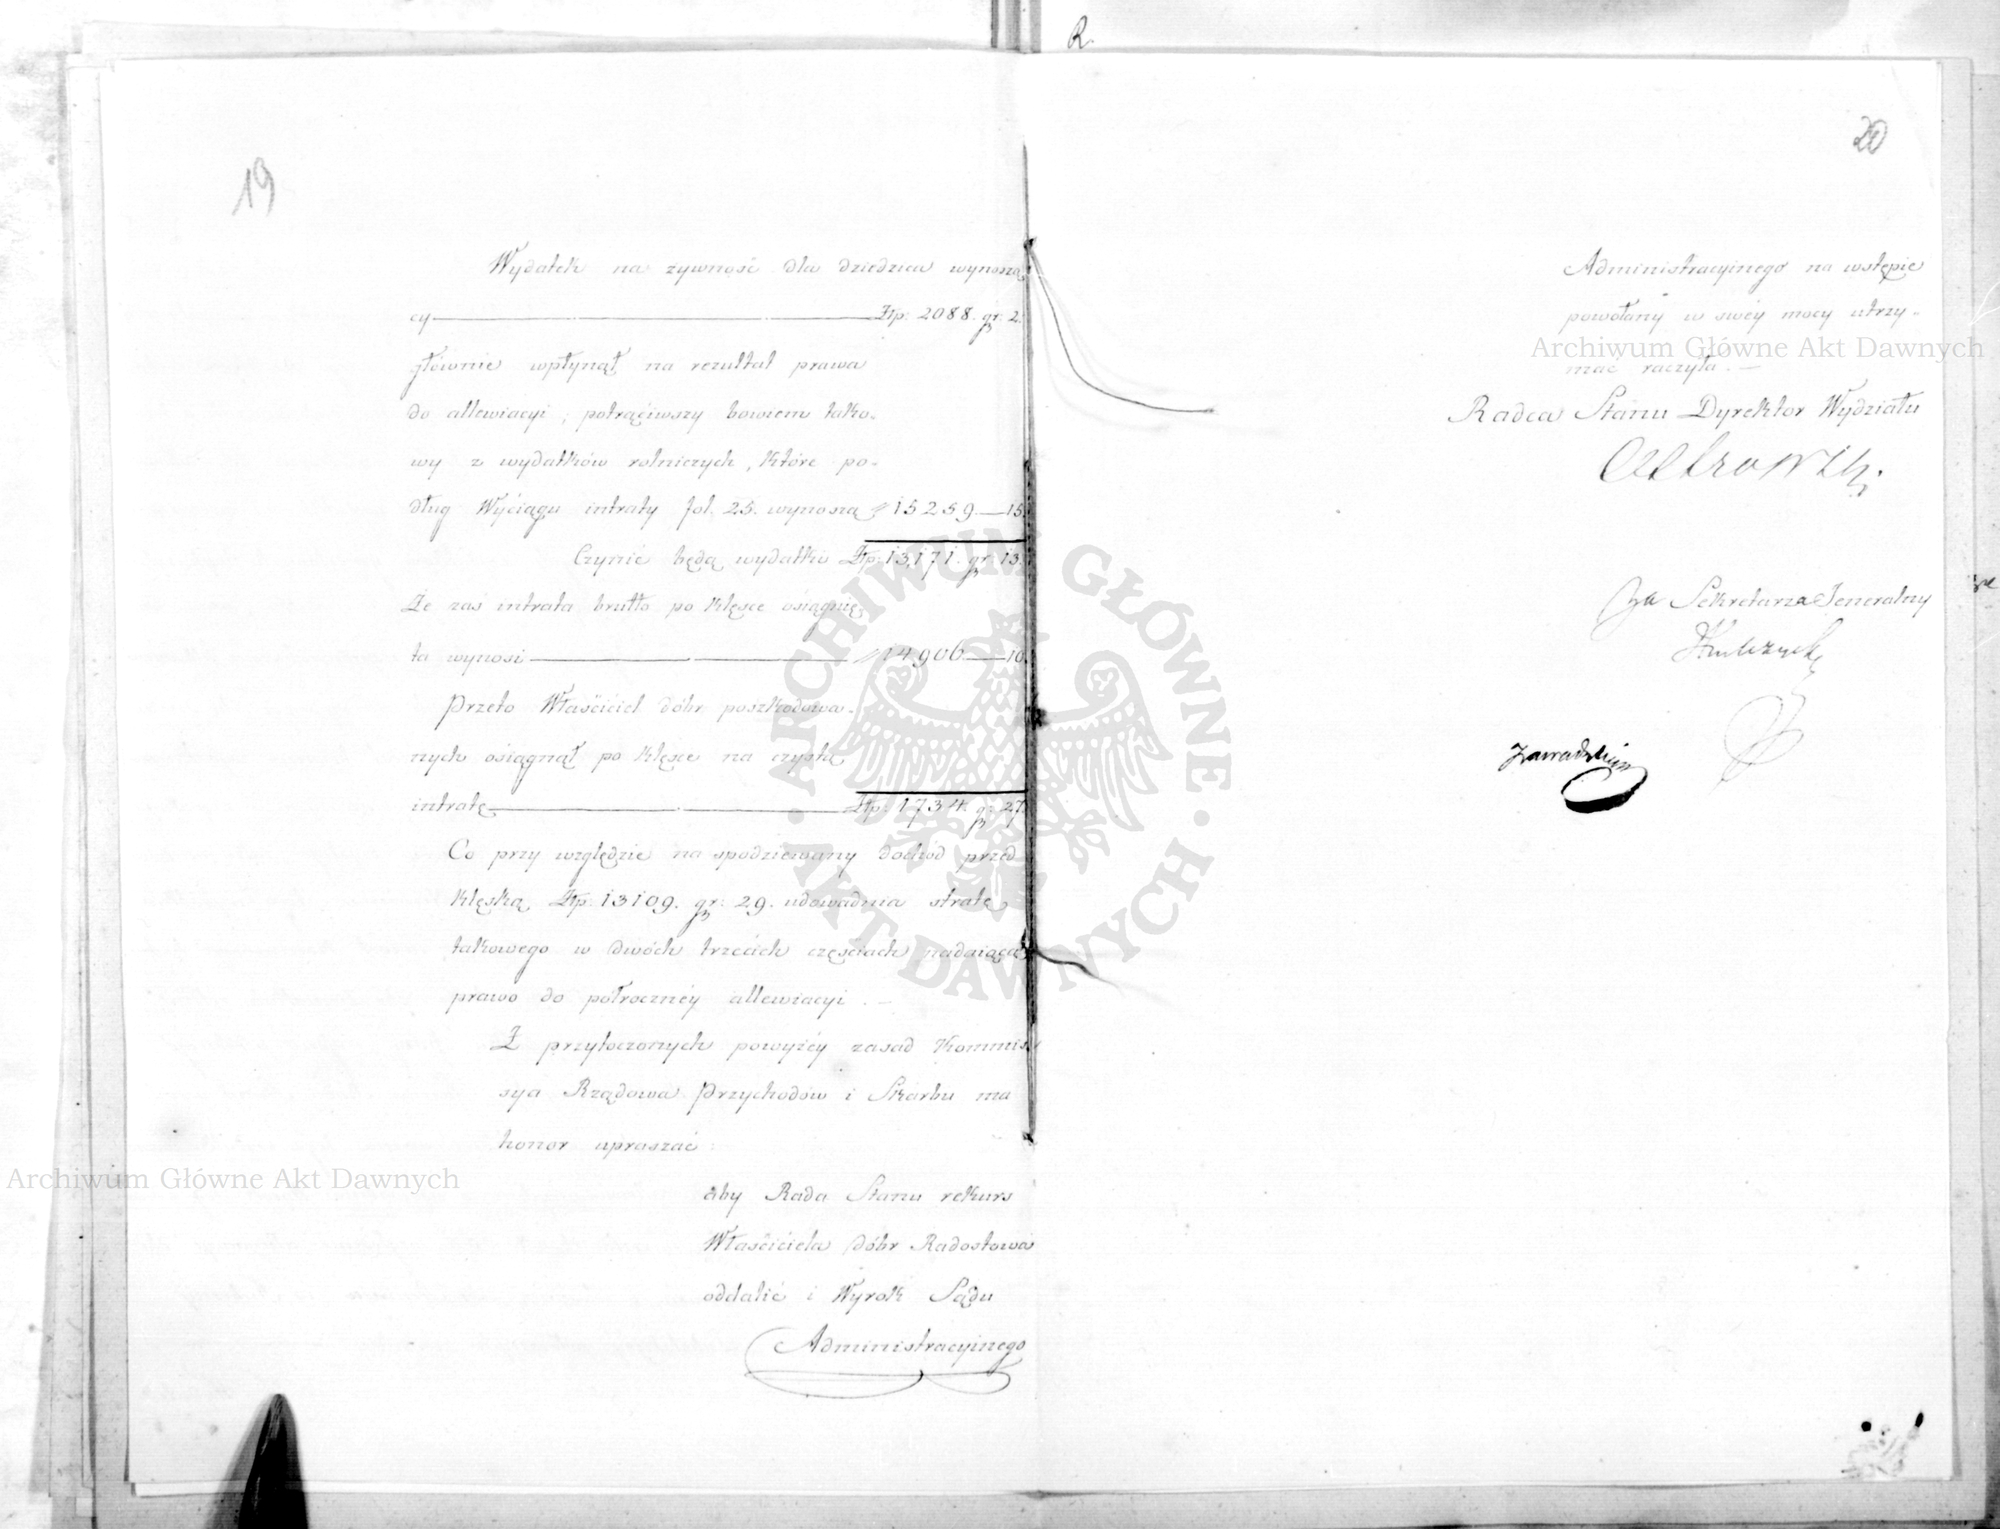 R.
19
Wydatek na żywność dla dziedzica wynoszą
cy Złp: 2088. gr: 2.
głównie wpłynął na rezultat prawa
do allewiacyi; potrąćiwszy bowiem tako-
wy z wydatków rolniczych, które po-
dług Wyćiągu intraty fol. 25. wynoszą 15259.—15.
Czynić będą wydatki Złp: 13,171. gr: 13.
Że zaś intrata brutto po klęsce osiągnię-
ta wynosi 14906—10.
Przeto Właśćićiel dóbr poszkodowa-
nych osiągnął po klęsce na czystę
intratę Złp: 1734. gr: 27.
Co przy względzie na spodziewany dochód przed
klęską Złp: 13109. gr: 29. udowadnia stratę
takowego w dwóch trzećich częśćiach nadaiącą
prawo do półrocznéy allewiacyi. —
Z przytoczonych powyżéy zasad Kommis
sya Rządowa Przychodów i Skarbu ma
honor upraszać:
aby Rada Stanu rekurs
Właśćićiela dóbr Radostowa
oddalić i Wyrok Sądu
Administracyinego
20
Administracyinego na wstępie
powołany w swéy mocy utrzy-
mać raczyła. —
Radca Stanu Dyrektor Wydziału
za Sekretarza Jeneralny
Zawadzki
Archiwum Główne Akt Dawnych
Archiwum Główne Akt Dawnych
ARCHIWUM GŁÓWNE · AKT DAWNYCH ·